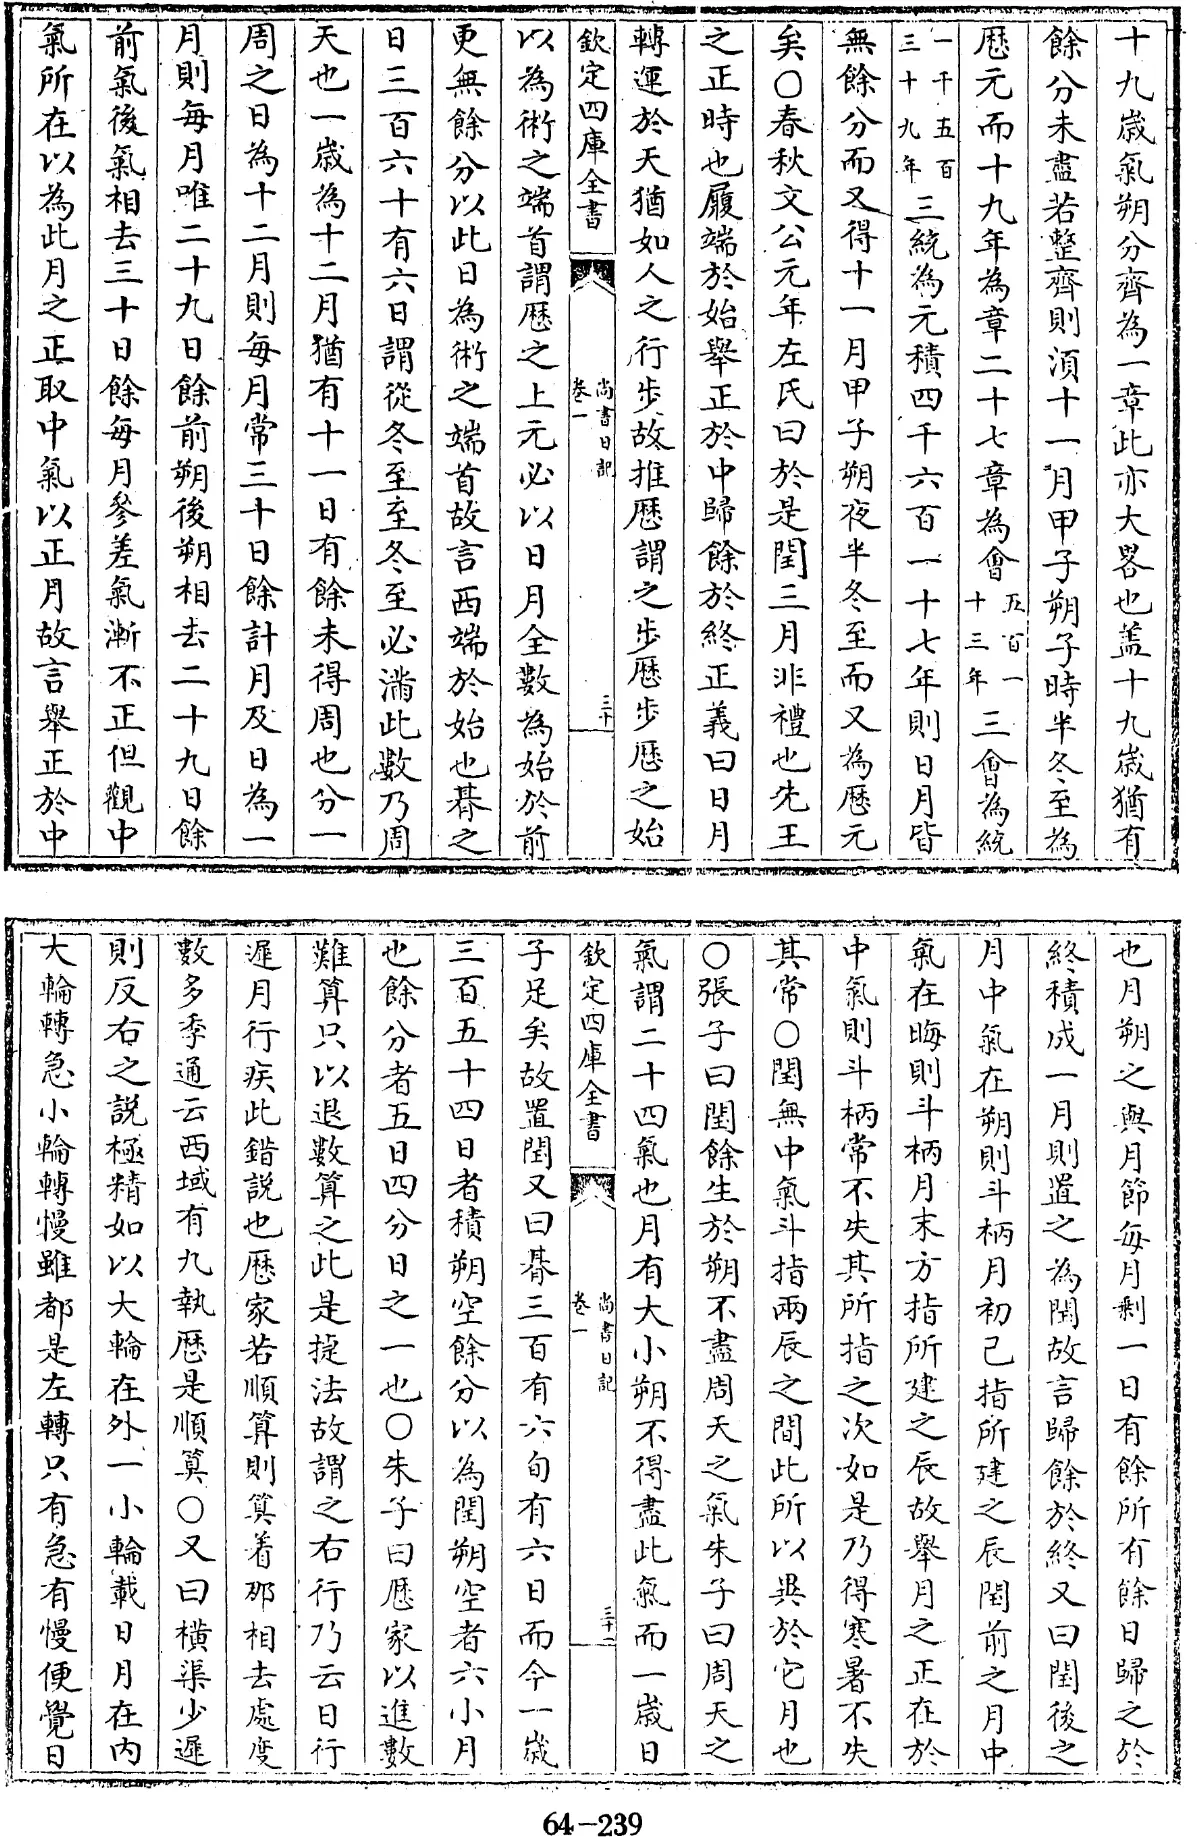 十九嵗氣朔分齊為一章此亦大畧也盖十九嵗猶有
餘分未盡若整齊則湏十一月甲子朔子時半冬至為
厯元而十九年為章二十七章為會五百一十三年三會為統
一千五百三十九年三統為元積四千六百一十七年則日月皆
無餘分而又得十一月甲子朔夜半冬至而又為厯元
矣○春秋文公元年左氏曰於是閏三月非禮也先王
之正時也履端於始舉正於中歸餘於終正義曰日月
轉運於天猶如人之行步故推厯謂之步厯步厯之始
欽定四庫全書 尚書日記 卷一 三十
以為術之端首謂厯之上元必以日月全數為始於前
更無餘分以此日為術之端首故言西端於始也朞之
日三百六十有六日謂從冬至至冬至必滿此數乃周
天也一嵗為十二月猶有十一日有餘未得周也分一
周之日為十二月則每月常三十日餘計月及日為一
月則每月唯二十九日餘前朔後朔相去二十九日餘
前氣後氣相去三十日餘每月參差氣漸不正但觀中
氣所在以為此月之正取中氣以正月故言舉正於中
也月朔之與月節每月剩一日有餘所有餘日歸之於
終積成一月則置之為閏故言歸餘於終又曰閏後之
月中氣在朔則斗柄月初已指所建之辰閏前之月中
氣在晦則斗柄月末方指所建之辰故舉月之正在於
中氣則斗柄常不失其所指之次如是乃得寒暑不失
其常○閏無中氣斗指兩辰之間此所以異於它月也
○張子曰閏餘生於朔不盡周天之氣朱子曰周天之
氣謂二十四氣也月有大小朔不得盡此氣而一嵗日
欽定四庫全書 尚書日記 卷一 三十一
子足矣故置閏又曰朞三百有六旬有六日而今一嵗
三百五十四日者積朔空餘分以為閏朔空者六小月
也餘分者五日四分日之一也○朱子曰厯家以進數
難算只以退數算之此是㨗法故謂之右行乃云日行
遲月行疾此錯説也厯家若順算則算着那相去處度
數多季通云西域有九執厯是順算○又曰横渠少遲
則反右之説極精如以大輪在外一小輪載日月在内
大輪轉急小輪轉慢雖都是左轉只有急有慢便覺日
64-239